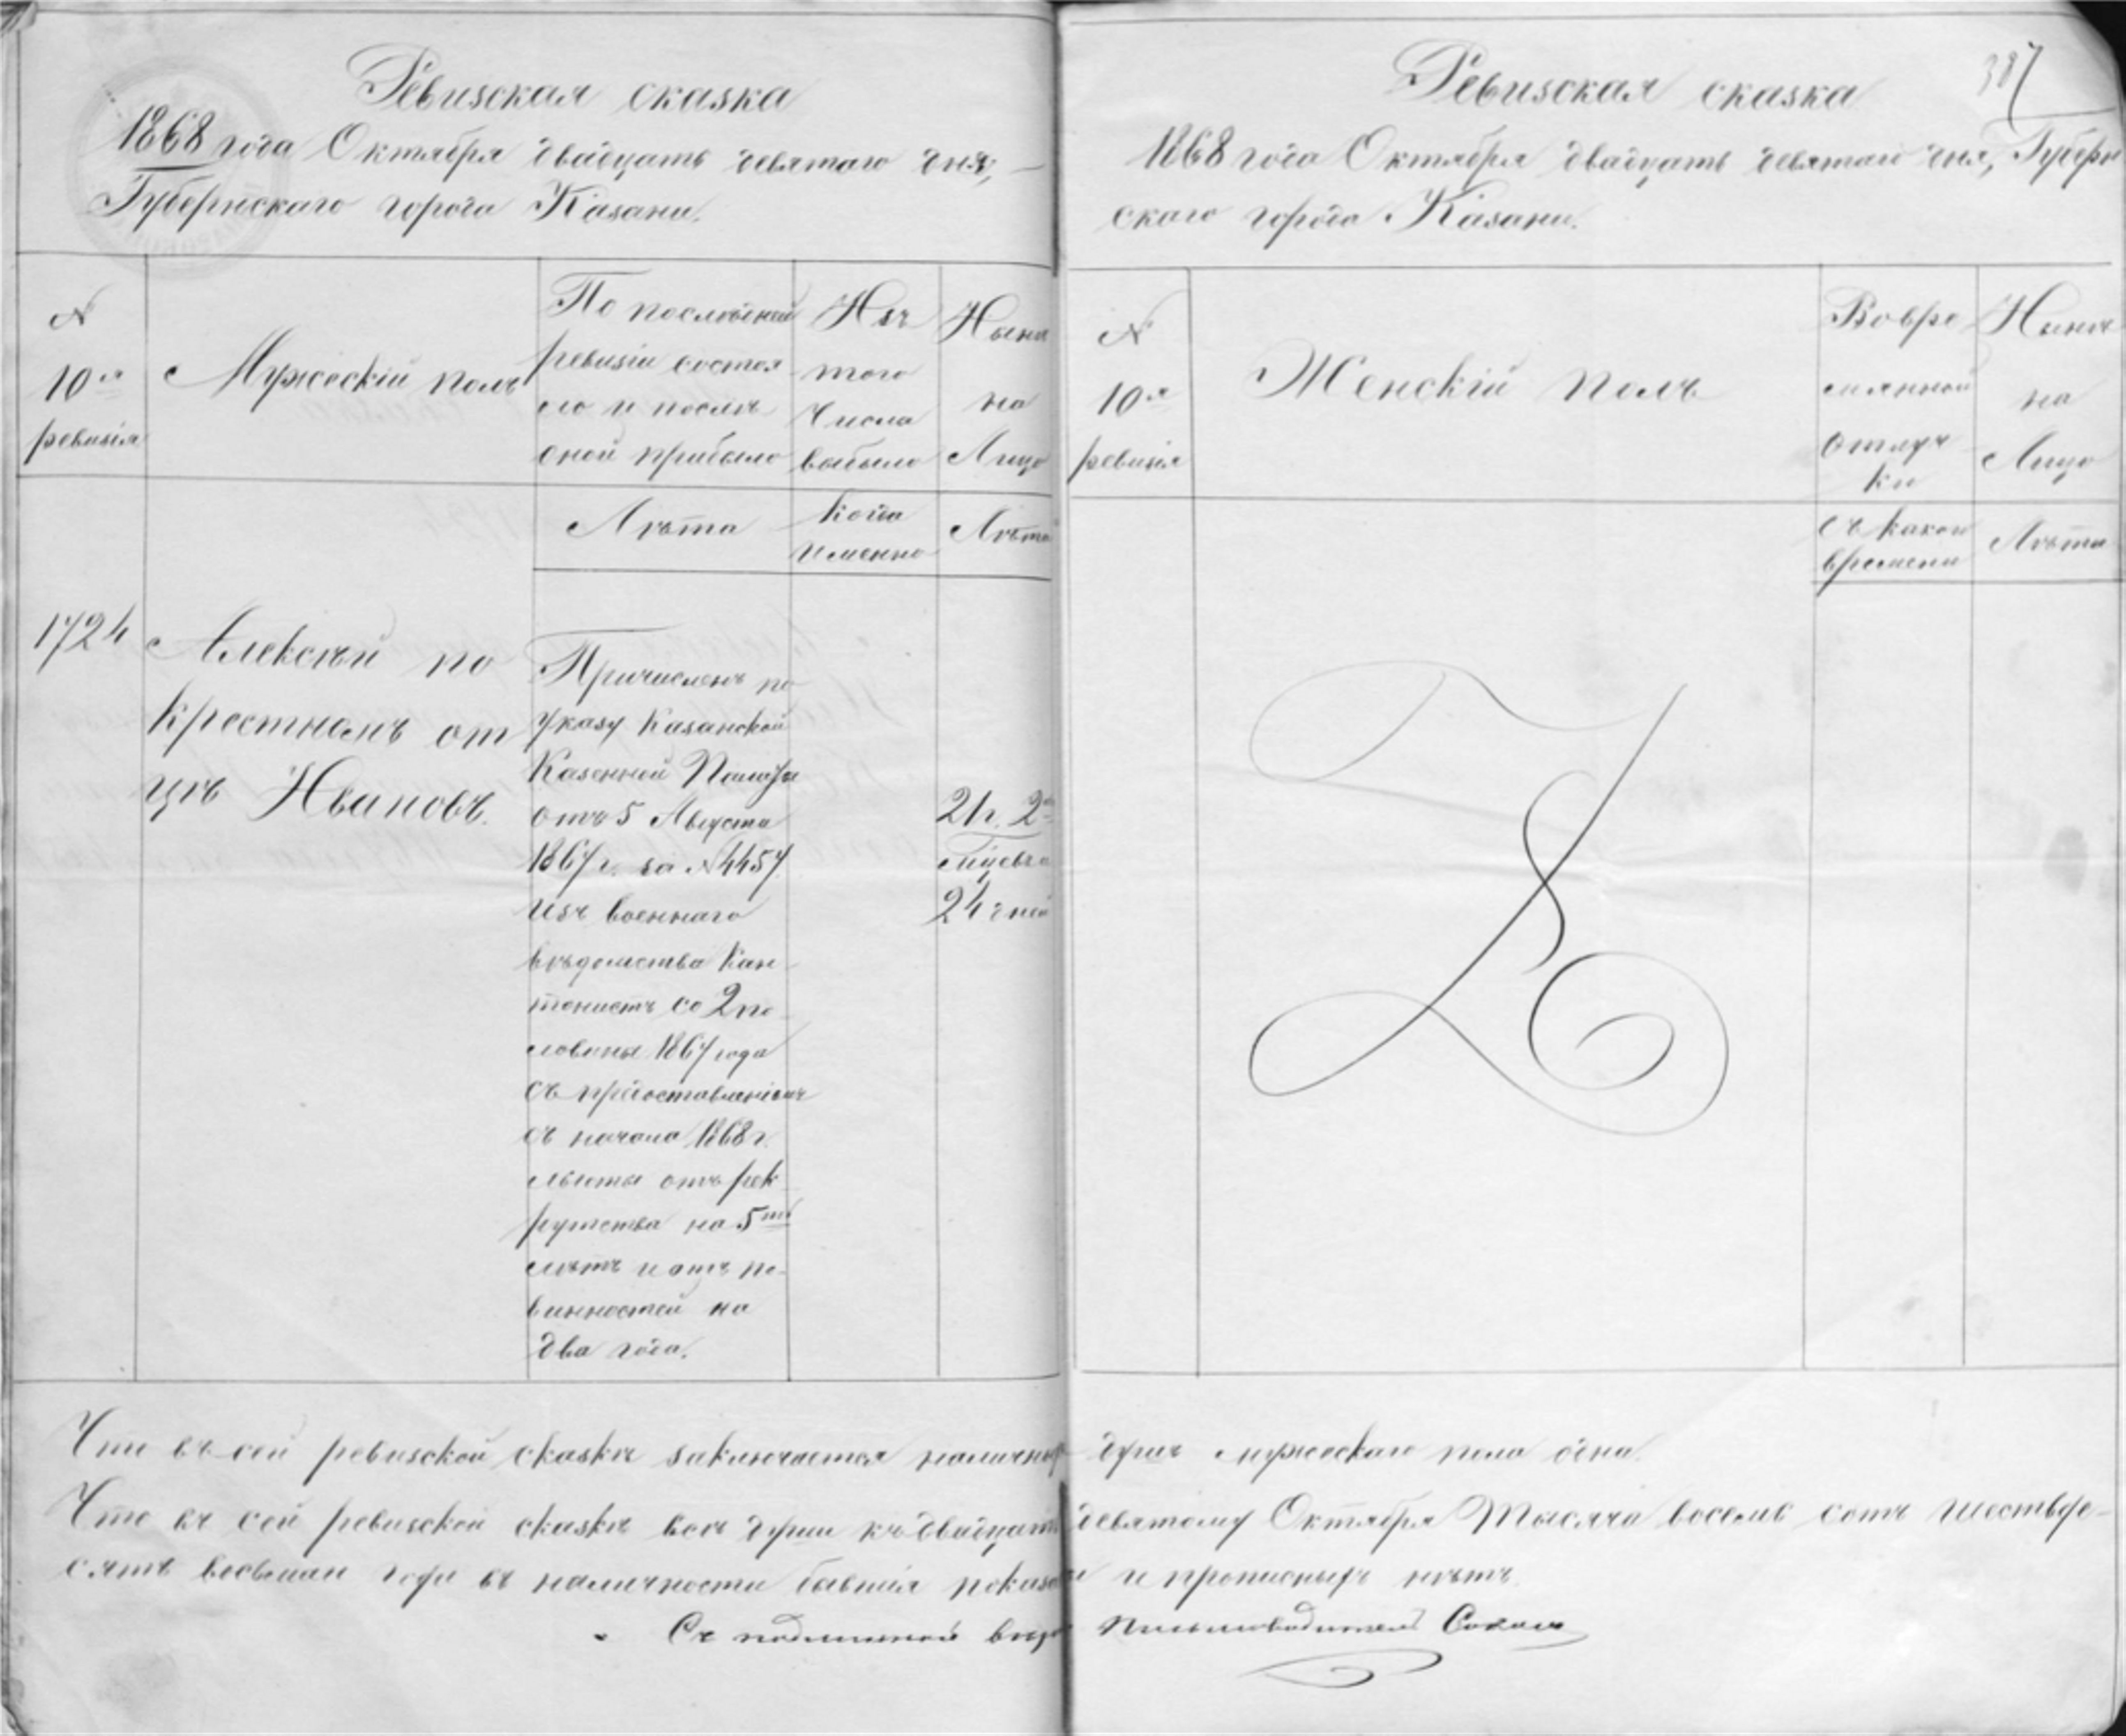 Ревизская сказка
1868 года Октября двадцать девятаго дня,
Губернскаго города Казани.
№
10я
ревизія
Мужескій полъ
По послѣдней
ревизіи состоя
ло и послѣ
оной прибыло
Изъ
того
числа
выбыло
Нынѣ
на
Лицо
Лѣта
Когда
именно
Лѣта
1724
Алексѣй по
крестномъ от
цѣ Ивановъ.
Причисленъ по
указу Казанской
Казенной Палаты
отъ 5 Августа
1867 г. за №4457
изъ военнаго
вѣдомства Кан-
тонистъ со 2 по-
ловины 1867 года
съ предоставленіемъ
съ начала 1868 г.
льготы отъ рек-
рутства на 5ть
лѣтъ и отъ по-
винностей на
два года.
21 г. 2
24 дней
Что въ сей ревизской сказкѣ заключается наличныхъ
Что въ сей ревизской сказкѣ всѣ души къ двадцать
сятъ восьмаго года въ наличности бывшія показа
Съ подлинной вѣр
387
Ревизская сказка
1868 года Октября двадцать девятаго дня, Губерн
скаго города Казани.
№
10я
ревизія
Женскій полъ
Во вре
мянной
отлуч
ки
Нынѣ
на
Лицо
съ какого
времени
Лѣта
душъ мужескаго пола одна.
девятому Октября Тысяча восемь сотъ шестьде-
и прописныхъ нѣтъ.
Письмоводитель